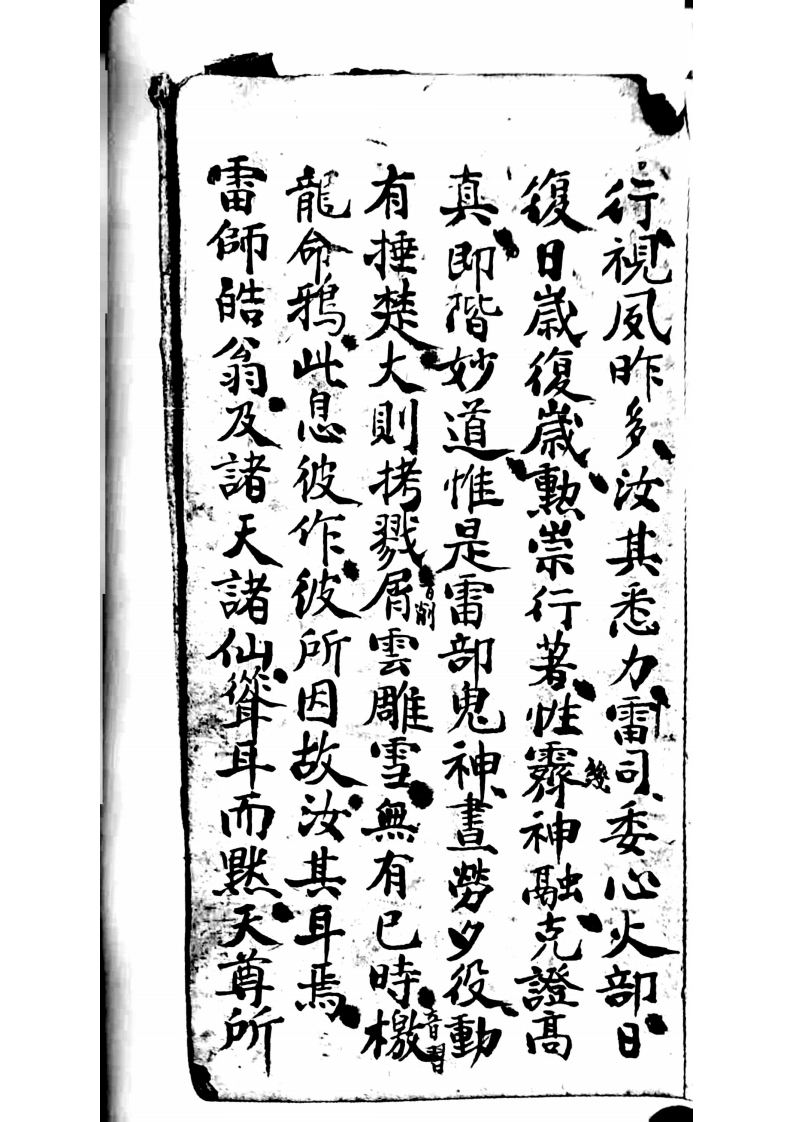 行視夙昨多汝其悉力雷司委心火部日
復日歲復歲勳崇行著性霽幾神融克證高
真即階妙道惟是雷部鬼神晝勞夕役動
有捶楚大則拷戮屑音削雲雕雪無有已時檄音習
龍命鴉此息彼作彼所因故汝其耳焉
雷師皓翁及諸天諸仙聳耳而默天尊所